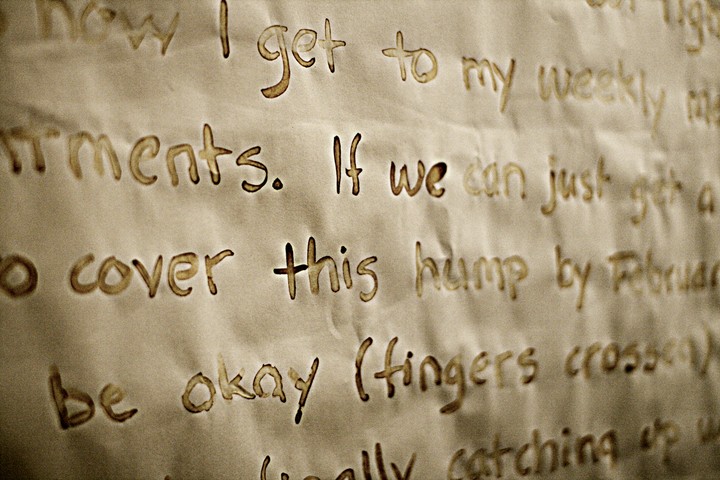 now I get to my weekly
ments. If we can just get a
cover this hump by Februar
be okay (fingers crossed)
catching up